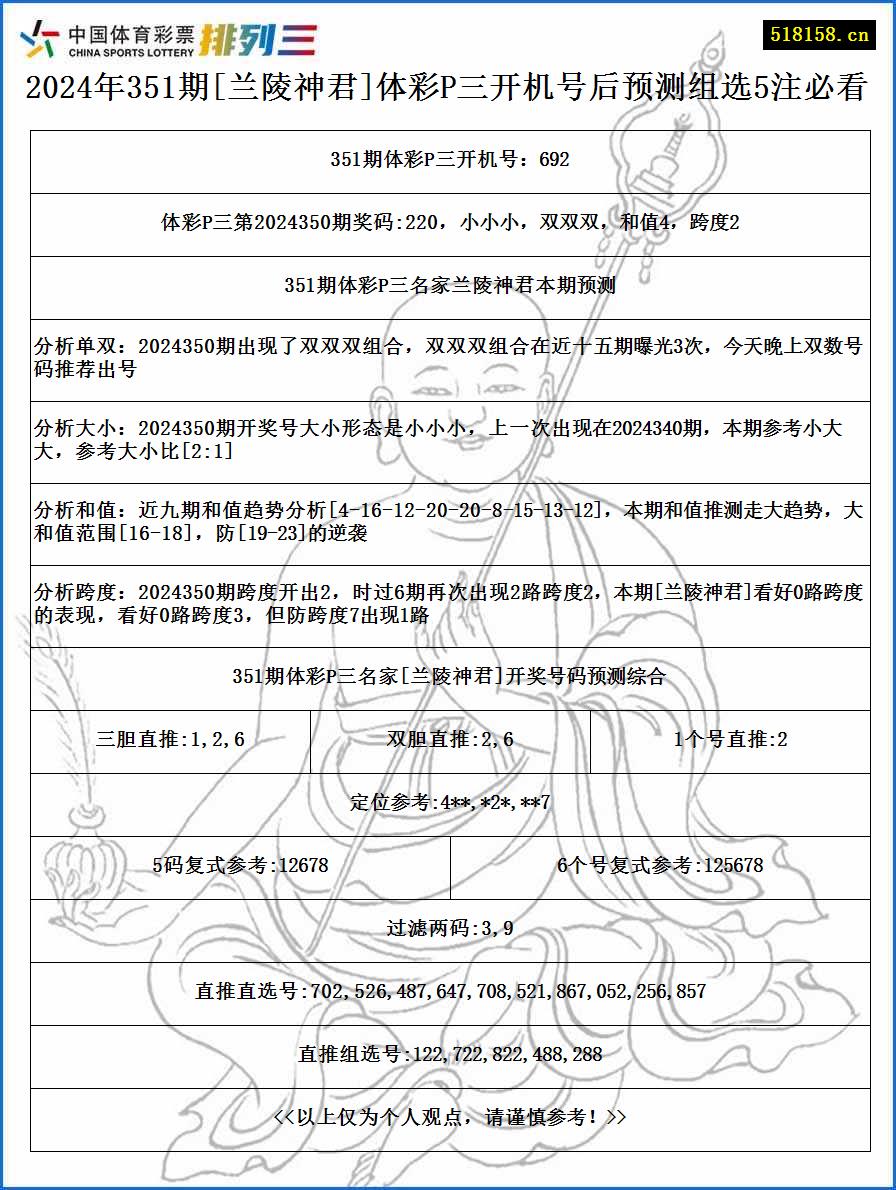 中国体育彩票
CHINA SPORTS LOTTERY
排列三
518158.cn
2024年351期[兰陵神君]体彩P三开机号后预测组选5注必看
351期体彩P三开机号：692
体彩P三第2024350期奖码:220，小小小，双双双，和值4，跨度2
351期体彩P三名家兰陵神君本期预测
分析单双：2024350期出现了双双双组合，双双双组合在近十五期曝光3次，今天晚上双数号
码推荐出号
分析大小：2024350期开奖号大小形态是小小小，上一次出现在2024340期，本期参考小大
大，参考大小比[2:1]
分析和值：近九期和值趋势分析[4-16-12-20-20-8-15-13-12]，本期和值推测走大趋势，大
和值范围[16-18]，防[19-23]的逆袭
分析跨度：2024350期跨度开出2，时过6期再次出现2路跨度2，本期[兰陵神君]看好0路跨度
的表现，看好0路跨度3，但防跨度7出现1路
351期体彩P三名家[兰陵神君]开奖号码预测综合
三胆直推:1,2,6
双胆直推:2,6
1个号直推:2
定位参考:4**,*2*,**7
5码复式参考:12678
6个号复式参考:125678
过滤两码:3,9
直推直选号:702,526,487,647,708,521,867,052,256,857
直推组选号:122,722,822,488,288
<<以上仅为个人观点，请谨慎参考！>>